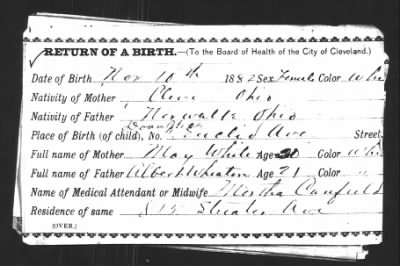 RETURN OF A BIRTH.—(To the Board of Health of the City of Cleveland.)
Date of Birth Nov 10th 1882 Sex Female Color Whi
Nativity of Mother Cleve Ohio
Nativity of Father Norwalk Ohio
Place of Birth (of child), No. Euclid Ave Street,
Full name of Mother May White Age 20 Color Whi
Full name of Father Albert Wheaton Age 21 Color "
Name of Medical Attendant or Midwife Martha Canfield
Residence of same Streator Ave
(OVER.)